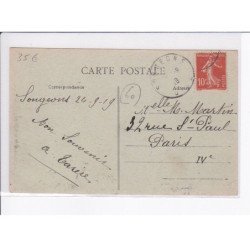 35€
CARTE POSTALE
Correspondance
Adresse
Songeons 26-9-19
Mon Souvenir
a.
Melle M. Martin
32 rue St Paul
Paris
IVe
10